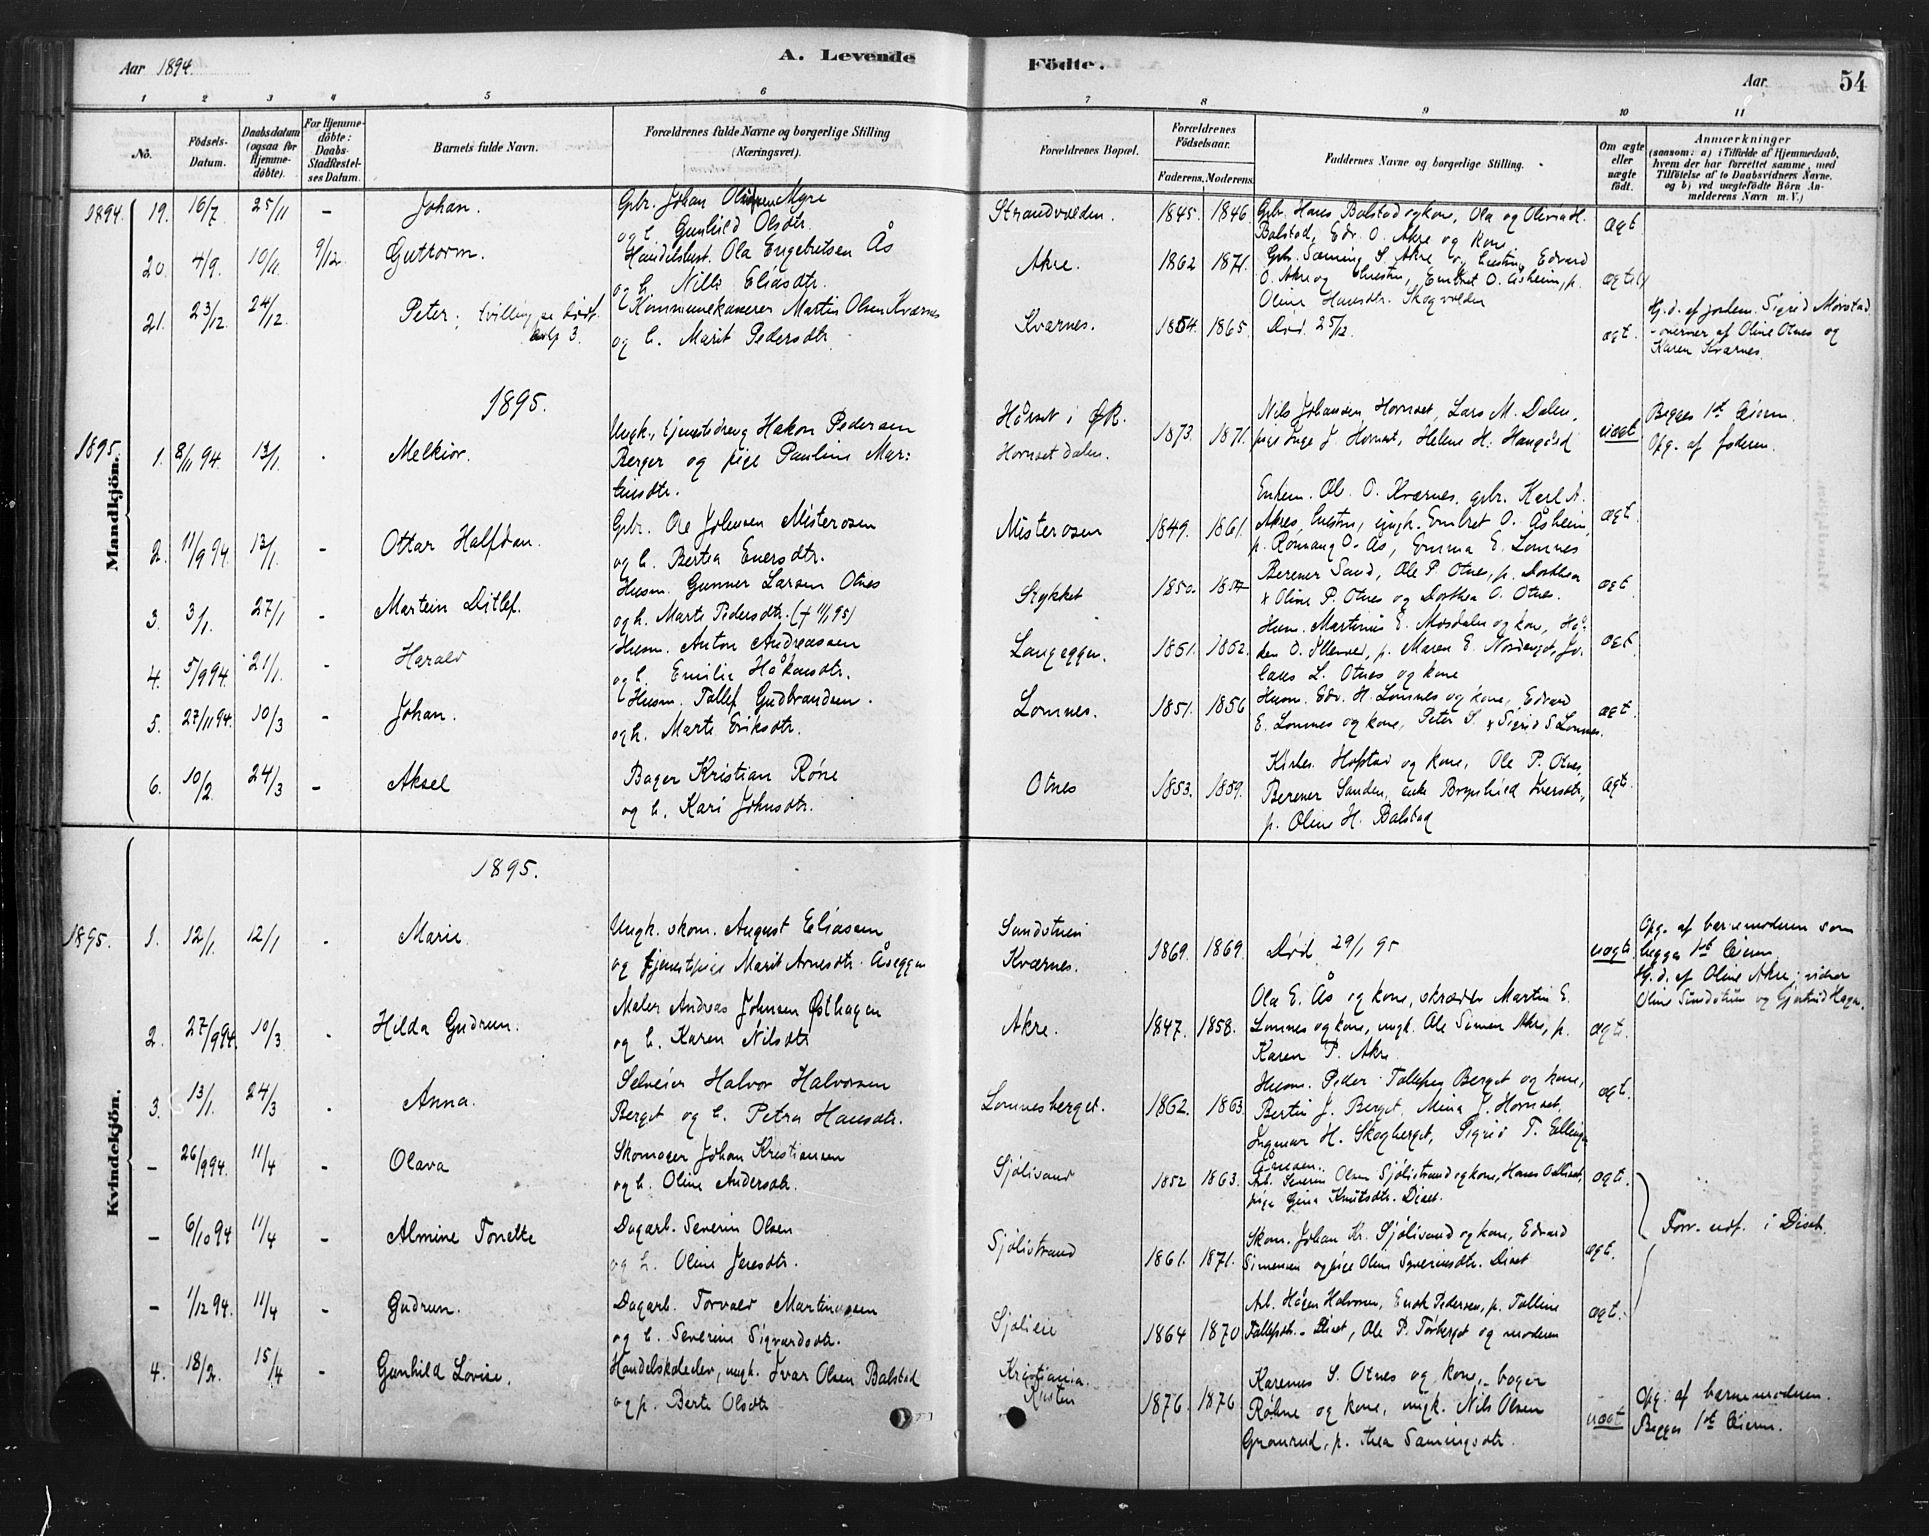 Aar 1894.
A. Levende
Födte.
Aar.
54
1 2 3 4 5 6 7 8 9 10 11
No.
Födsels-Datum.
Daabsdatum (ogsaa for Hjemmedöbte).
For Hjemmedöbte: Daabs-Stadfæstelses Datum.
Barnets fulde Navn.
Forældrenes fulde Navne og borgerlige Stilling (Næringsvei).
Forældrenes Bopæl.
Forældrenes Födselsaar.
Faderens. Moderens.
Faddernes Navne og borgerlige Stilling.
Om ægte eller uægte födt.
Anmærkninger
(saasom: a) i Tilfælde af Hjemmedaab, hvem der har forrettet samme, med Tilföielse af to Daabsvidners Navne, og b) ved uægtefödte Börn Anmelderens Navn m. V.)
Mandkjön.
1894. 19. 16/7 25/11 - Johan. Gbr. Johan Olsen Myre
og h. Gunhild Olsdtr. Strandvolden. 1845. 1846. Gbr. Hans Balstad og kone, Ola og Olivia H.
Balstad, Edv. O. Akre og kone ægt.
20. 4/9. 10/11. 9/12 Guttorm. Handelsbest. Ola Engebretsen Ås
og h. Nille Eliasdtr. Akre. 1862 1871. Gbr. Sæming S. Akre og hustru, Edvard
O. Akre og hustru, Embret O. Åsheim, p.
Oline Hansdtr. Skogvolden ægte
21. 23/12. 24/12. Peter, tvilling se dødf. 3. Kommunekasserer Martin Olsen Kværnes
og h. Marit Pedersdtr. Kvarnes. 1854. 1865. Død. 25/12 ægt. Hj. d. af jordm. Sigrid Morstad
- nærvær af Oline Otnes og
Karen Kværnes.
1895.
1895. 1. 8/11 94. 13/1. - Melkior. Ungk., tjenestedreng Hakon Pedersen
Berger og pige Pauline Mar-
tinsdtr. Hornset i ØR.
Hornset dalen. 1873. 1871. Nils Johansen Hornset, Lars M. Dalen,
pige Inge J. Hornset, Helene H. uægt Begges 1ste Leierm.
Opg. af faderen.
2. 11/9 94. 13/1 - Ottar Halfdan. Gbr. Ole Johnsen Misterosen
og h. Bertea Enersdtr. Misterosen 1849. 1861. Enkem. Ole O. Kværnes, gbr. Karl A.
Akre, hustru, ungk. Embret O. Åsheim,
p. Romaug O. Ås, Emma E. Lomnes ægt.
3. 3/1. 27/1 - Martein Ditlef. Husm. Gunner Larsen Otnes
og h. Marte Pedersdtr. (+ 11/1 95) Stykket 1850. Berener Sand, Ole P. Otnes, p. Dorthea
x Oline P. Otnes og Dorthea O. Otnes. ægt.
4. 5/9 94. 21/1 - Harald Husm. Anton Andreassen
og h. Emilie Håkonsdtr. Langeggen. 1851. 1862. Husm. Martinus E. Mosdalen og kone,
p. Maren E. Nordenget,
L. Otnes og kone ægt.
5. 27/11 94. 10/3 - Johan. Husm. Tollef Gudbrandsen.
og h. Marte Eriksdtr. Lomnes. 1851. 1856 Husm. Edv. H. Lomnes og kone, Edvard
E. Lomnes og kone, Peter S. x Sigrid S. Lomnes. ægt.
6. 10/2. 24/3 - Aksel Bager Kristian Røne
og h. Kari Johnsdtr. Otnes 1853. 1859. Kirkes. Hofstad og kone, Ole P. Otnes,
Berener Sanden, enke Brynhild Iversdtr.,
p. Oline H. Balstad ægt.
Kvindekjön.
1895.
1895. 1. 12/1. 12/1 - Marie Ungk. skom. August Eliassen
og tjenestepige Marit Arnesdtr. Åseggen Sundstuen
Kværnes. 1869. 1869. Død 29/1 95 uægte Opg. af barnemoderen som
begges 1ste Leierm.
Hj. d. af Oline Akre; vidner
Oline Sundstuen og Gjertrud Hagen.
2. 27/9 94. 10/3 - Hilda Gudrun. Maler Andreas Johnsen Østhagen
og h. Karen Nilsdtr Akre. 1847. 1858. Ola E. Ås og kone, skrædder Martin E.
Lomnes og kone, ungk. Ole Simen Akre, p.
Karen P. Akre. ægte.
3. 13/1. 24/3 - Anna. Selveier Halvor Halvorsen
Berget og h. Petra Hansdtr. Lomnesberget. 1862. 1863 Husm. Peder Tollefsen Berget og kone,
Bertin J. Berget, Mina J. Hornset,
Ingmar H. Skogberget, Sigrid T. ægt.
- 26/9 94. 11/4 - Olava Skomager Johan Kristiansen
og h. Oline Andersdtr. Sjølivand 1852 1863. Arb. Severin Olsen Sjølistrand og kone, Hans
pige Gina Knutsdtr. Diset. ægt.
- 6/10 94 11/4 - Almine Tonette Dagarb. Severin Olsen
og h. Oline Jensdtr. Sjølistrand 1861. 1871. Skom. Johan Kr. Sjølivand og kone, Edvard
Simensen og pige Oline Syverinsdtr. Diset ægt. Forr. udf. i Diset.
- 1/12 94. 11/4 - Gudrun. Dagarb. Torvald Martinussen
og h. Severine Sigvardsdtr. Sjølien 1864 1870 Arb. Hågen Halvorsen, Enok Pedersen, p. Talline
Tollefsdtr. - Diset, Ole P. Torberget og moderen ægt.
4. 18/2. 15/4 - Gunhild Lovise. Handelskoleelev, ungk. Ivar Olsen Balstad
og p. Berte Olsdtr Kristiania.
Kusten 1876. 1876 Karenus S. Otnes og kone, bager
Røhne og kone, ungk. Nils Olsen
Granrud, p. Thea Samingsdtr. uægt Opg. af barnemoderen.
Begges 1ste Leierm.